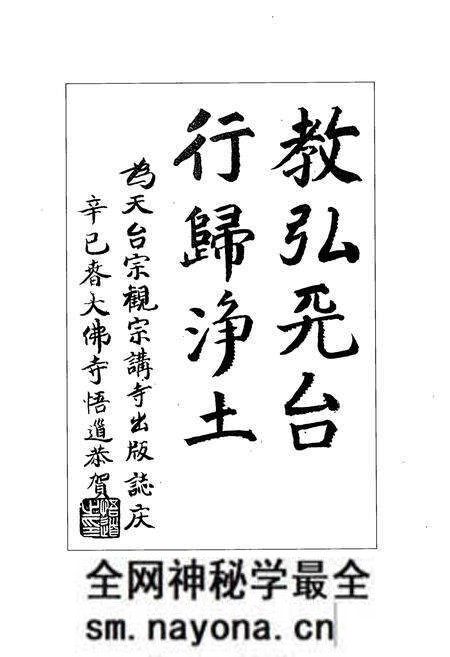 教弘天台
行歸净土
為天台宗觀宗講寺出版誌庆
辛巳春大佛寺悟道恭賀
全网神秘学最全
sm.nayona.cn